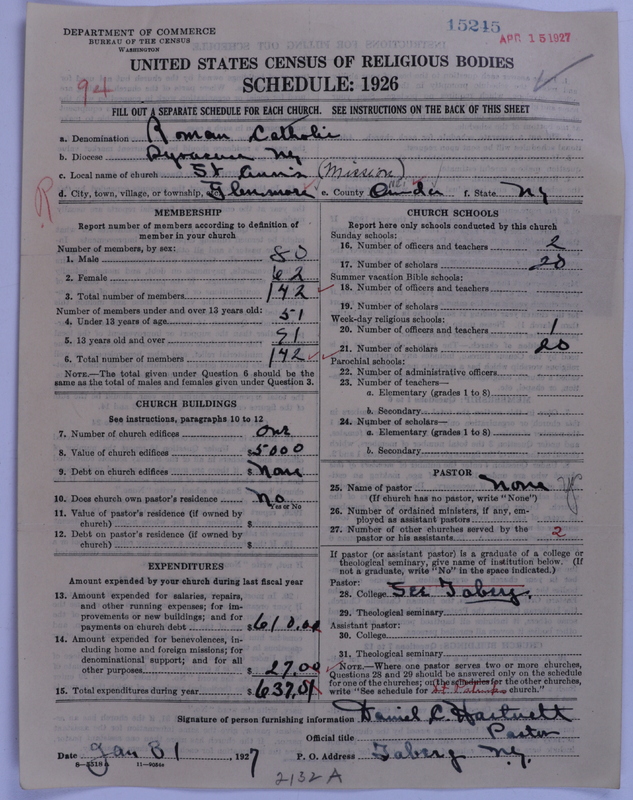 15245
APR 15 1927
DEPARTMENT OF COMMERCE
BUREAU OF THE CENSUS
WASHINGTON
UNITED STATES CENSUS OF RELIGIOUS BODIES
SCHEDULE: 1926
94
FILL OUT A SEPARATE SCHEDULE FOR EACH CHURCH. SEE INSTRUCTIONS ON THE BACK OF THIS SHEET
a. Denomination Roman Catholic
b. Diocese Syracuse NY
c. Local name of church St Ann's (Mission)
d. City, town, village, or township, etc. Glenmore e. County Oneida f. State NY
R
MEMBERSHIP
Report number of members according to definition of
member in your church
Number of members, by sex:
1. Male 80
2. Female 62
3. Total number of members 142
Number of members under and over 13 years old:
4. Under 13 years of age 51
5. 13 years old and over 91
6. Total number of members 142
NOTE.—The total given under Question 6 should be the
same as the total of males and females given under Question 3.
CHURCH BUILDINGS
See instructions, paragraphs 10 to 12
7. Number of church edifices One
8. Value of church edifices $5000
9. Debt on church edifices $ None
10. Does church own pastor's residence No
Yes or No
11. Value of pastor's residence (if owned by
church) $
12. Debt on pastor's residence (if owned by
church) $
EXPENDITURES
Amount expended by your church during last fiscal year
13. Amount expended for salaries, repairs,
and other running expenses; for im-
provements or new buildings; and for
payments on church debt $610.00
14. Amount expended for benevolences, in-
cluding home and foreign missions; for
denominational support; and for all
other purposes $27.00
15. Total expenditures during year $637.01
CHURCH SCHOOLS
Report here only schools conducted by this church
Sunday schools:
16. Number of officers and teachers 2
17. Number of scholars 20
Summer vacation Bible schools:
18. Number of officers and teachers
19. Number of scholars
Week-day religious schools:
20. Number of officers and teachers 1
21. Number of scholars 20
Parochial schools:
22. Number of administrative officers
23. Number of teachers—
a. Elementary (grades 1 to 8)
b. Secondary
24. Number of scholars—
a. Elementary (grades 1 to 8)
b. Secondary
PASTOR
25. Name of pastor None
(If church has no pastor, write "None")
26. Number of ordained ministers, if any, em-
ployed as assistant pastors
27. Number of other churches served by the
pastor or his assistants 2
If pastor (or assistant pastor) is a graduate of a college or
theological seminary, give name of institution below. (If
not a graduate, write "No" in the space indicated.)
Pastor:
28. College See Taberg.
29. Theological seminary
Assistant pastor:
30. College
31. Theological seminary
NOTE.—Where one pastor serves two or more churches,
Questions 28 and 29 should be answered only on the schedule
for one of the churches; on the schedules for the other churches,
write "See schedule for St Patricks church."
Signature of person furnishing information Daniel C. Hartnett
Official title Pastor
Date Jan 31, 1927 P. O. Address Taberg N.Y.
8—5518a 11—9054
2132 A